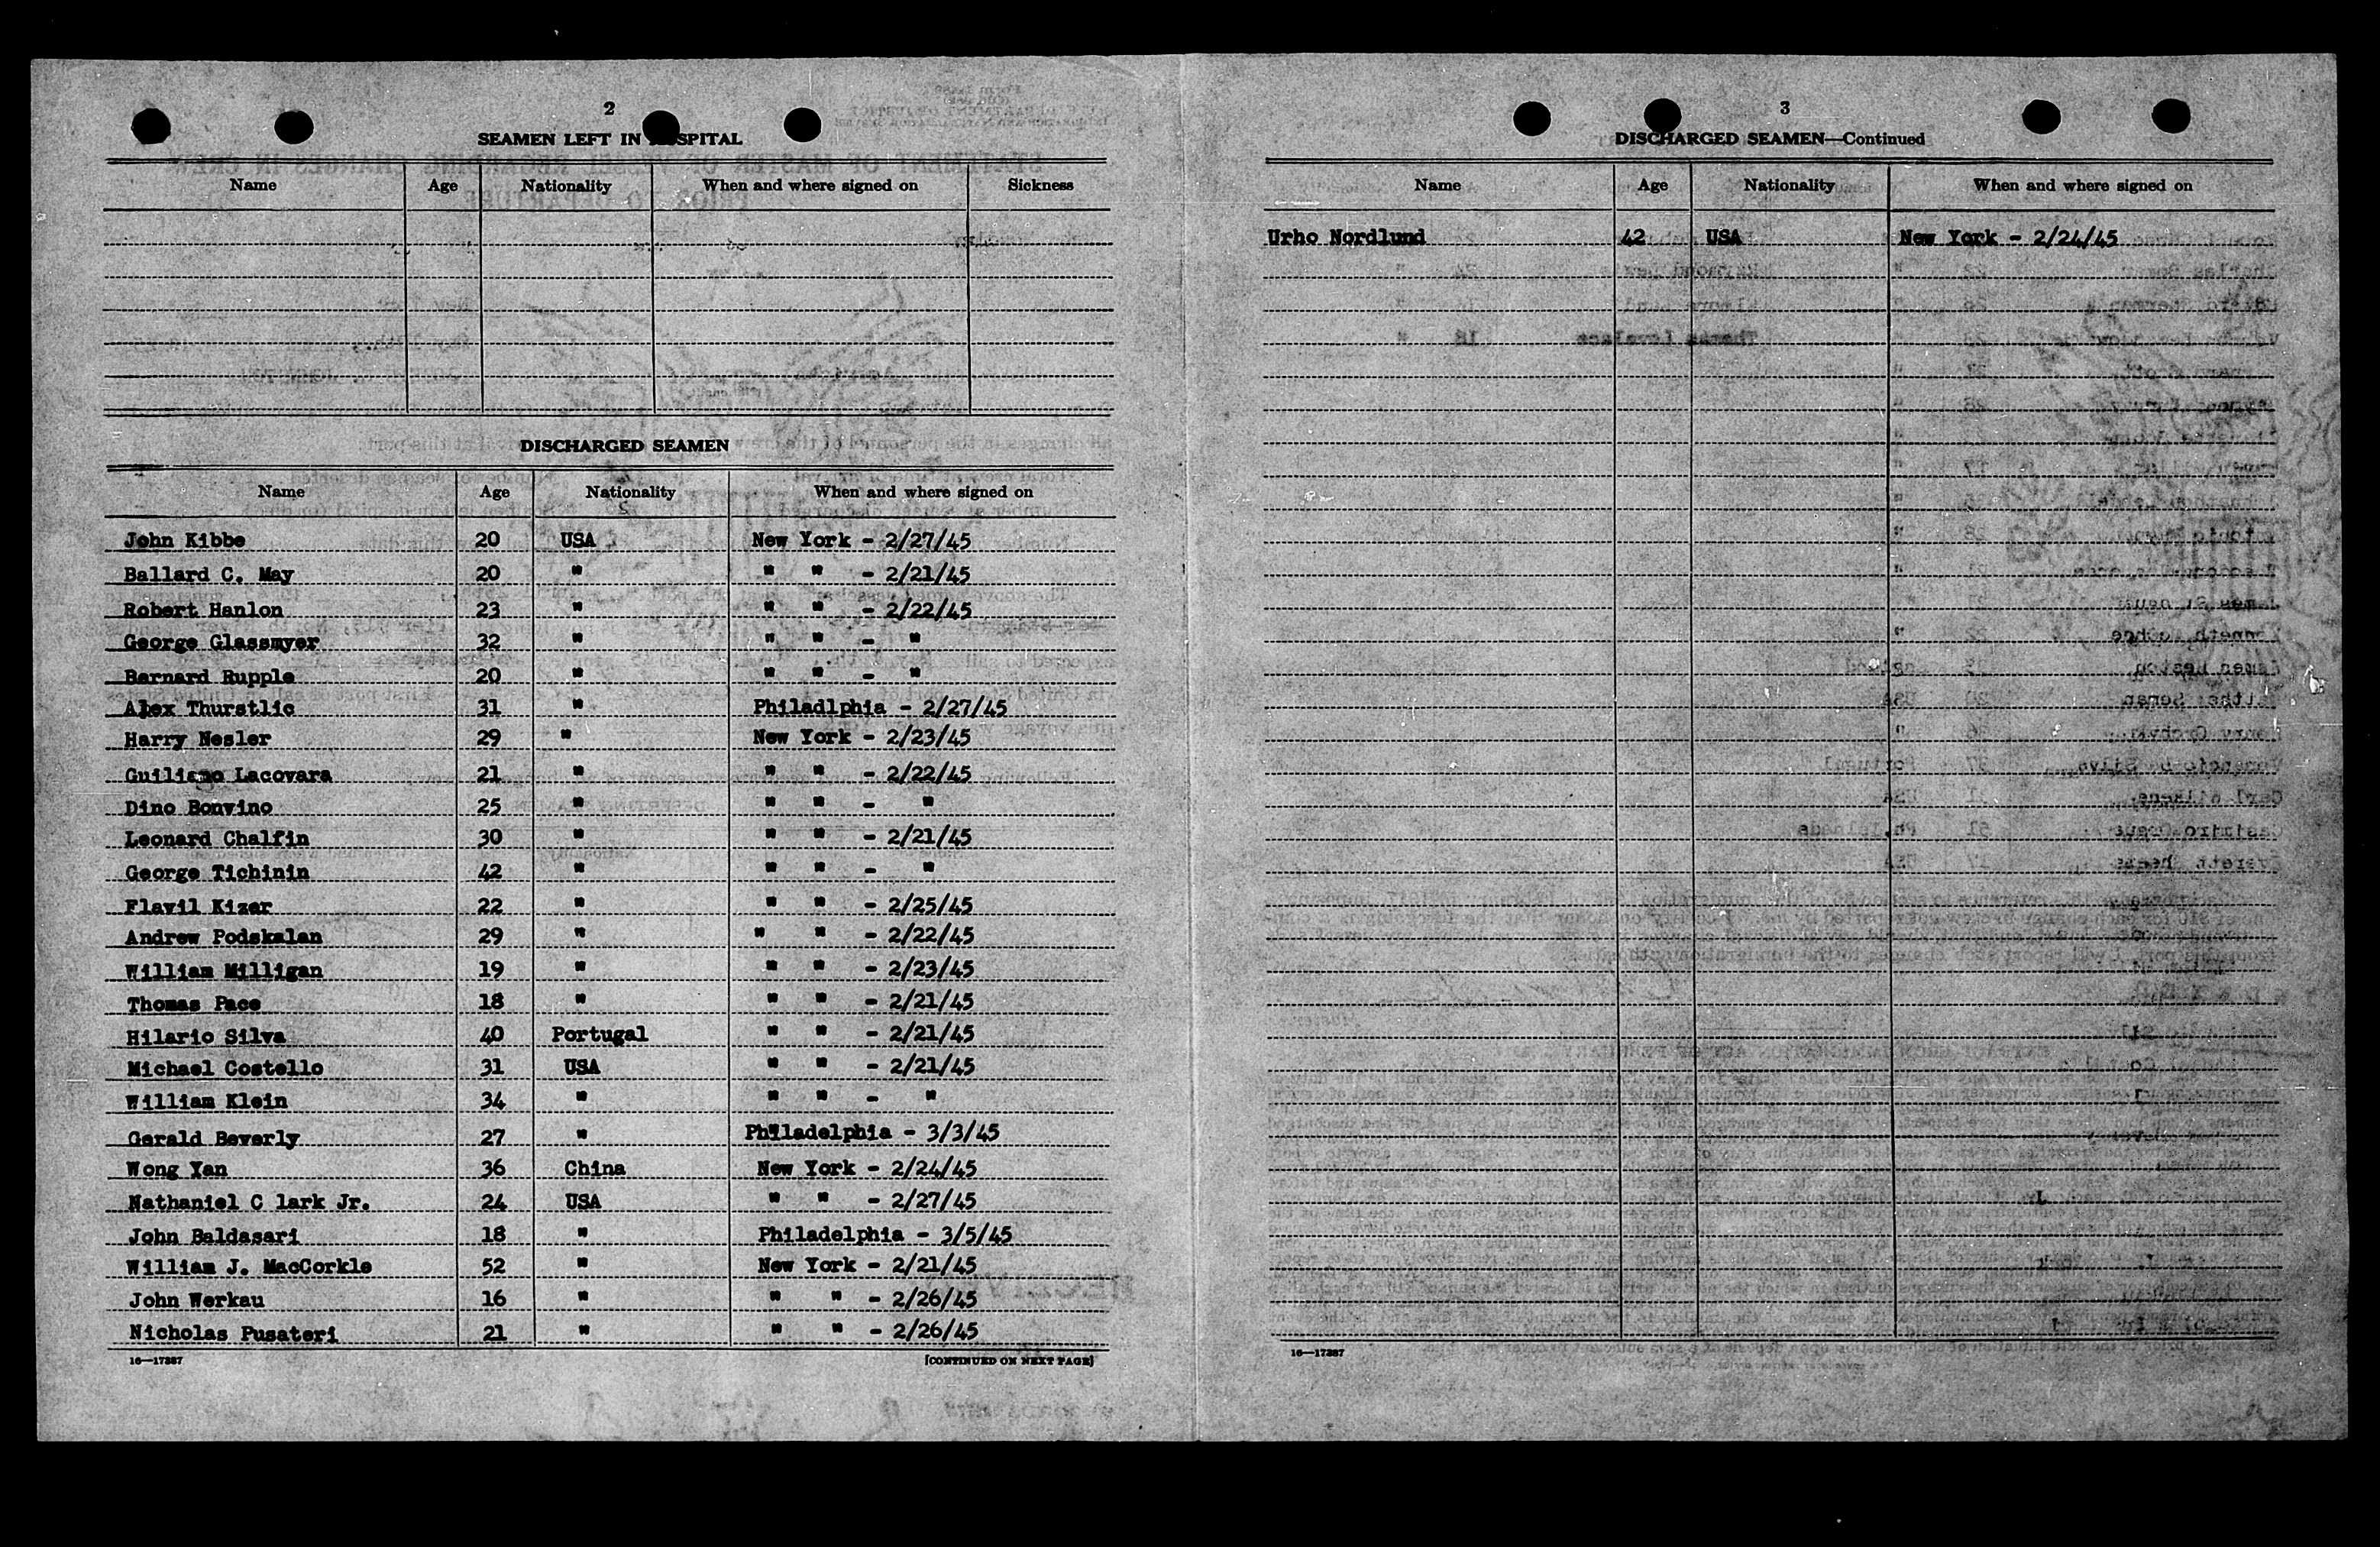 2
SEAMEN LEFT IN HOSPITAL
Name Age Nationality When and where signed on Sickness
DISCHARGED SEAMEN
Name Age Nationality When and where signed on
John Kibbe 20 USA New York - 2/27/45
Ballard C. May 20 " " " - 2/21/45
Robert Hanlon 23 " " " - 2/22/45
George Glassmyer 32 " " " - "
Barnard Rupple 20 " " " - "
Alex Thurstlic 31 " Philadlphia - 2/27/45
Harry Nesler 29 " New York - 2/23/45
Lacovara 21 " " " - 2/22/45
Dino Bonvino 25 " " " - "
Leonard Chalfin 30 " " " - 2/21/45
George Tichinin 42 " " " - "
Flavil Kizer 22 " " " - 2/25/45
Andrew Podskalan 29 " " " - 2/22/45
William Milligan 19 " " " - 2/23/45
Thomas Pace 18 " " " - 2/21/45
Hilario Silva 40 Portugal " " - 2/21/45
Michael Costello 31 USA " " - 2/21/45
William Klein 34 " " " - "
Gerald Beverly 27 " Philadelphia - 3/3/45
Wong Yan 36 China New York - 2/24/45
Nathaniel C lark Jr. 24 USA " " - 2/27/45
John Baldasari 18 " Philadelphia - 3/5/45
William J. MacCorkle 52 " New York - 2/21/45
John Werkau 16 " " " - 2/26/45
Nicholas Pusateri 21 " " " - 2/26/45
16—17387 [CONTINUED ON NEXT PAGE]
3
DISCHARGED SEAMEN—Continued
Name Age Nationality When and where signed on
Urho Nordlund 42 USA New York - 2/24/45
16—17387